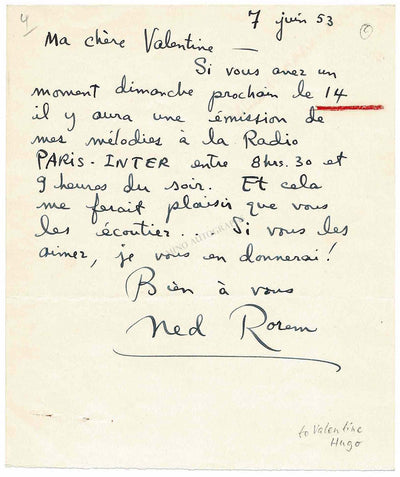 4
7 juin 53
Ma chère Valentine —
Si vous avez un
moment dimanche prochain le 14
il y aura une émission de
mes mélodies à la Radio
PARIS-INTER entre 8hrs.30 et
9 heures du soir. Et cela
me ferait plaisir que vous
les écoutier... Si vous les
aimez, je vous en donnerai!
Bien à vous
Ned Rorem
to Valentine
Hugo